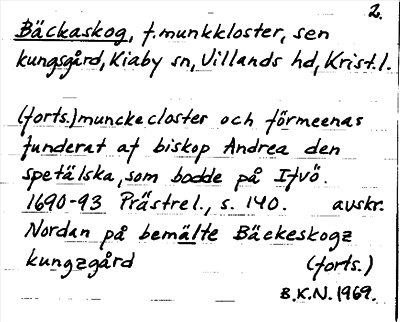 2.
Bäckaskog, f. munkkloster, sen
kungsgård, Kiaby sn, Villands hd, Krist. l.
(forts.) munckecloster och förmeenas
funderat af biskop Andrea den
spetälska, som bodde på Ifvö.
1690-93 Prästrel., s. 140. avskr.
Nordan på bemälte Bäckeskogz
kungzgård (forts.)
B.K.N. 1969.